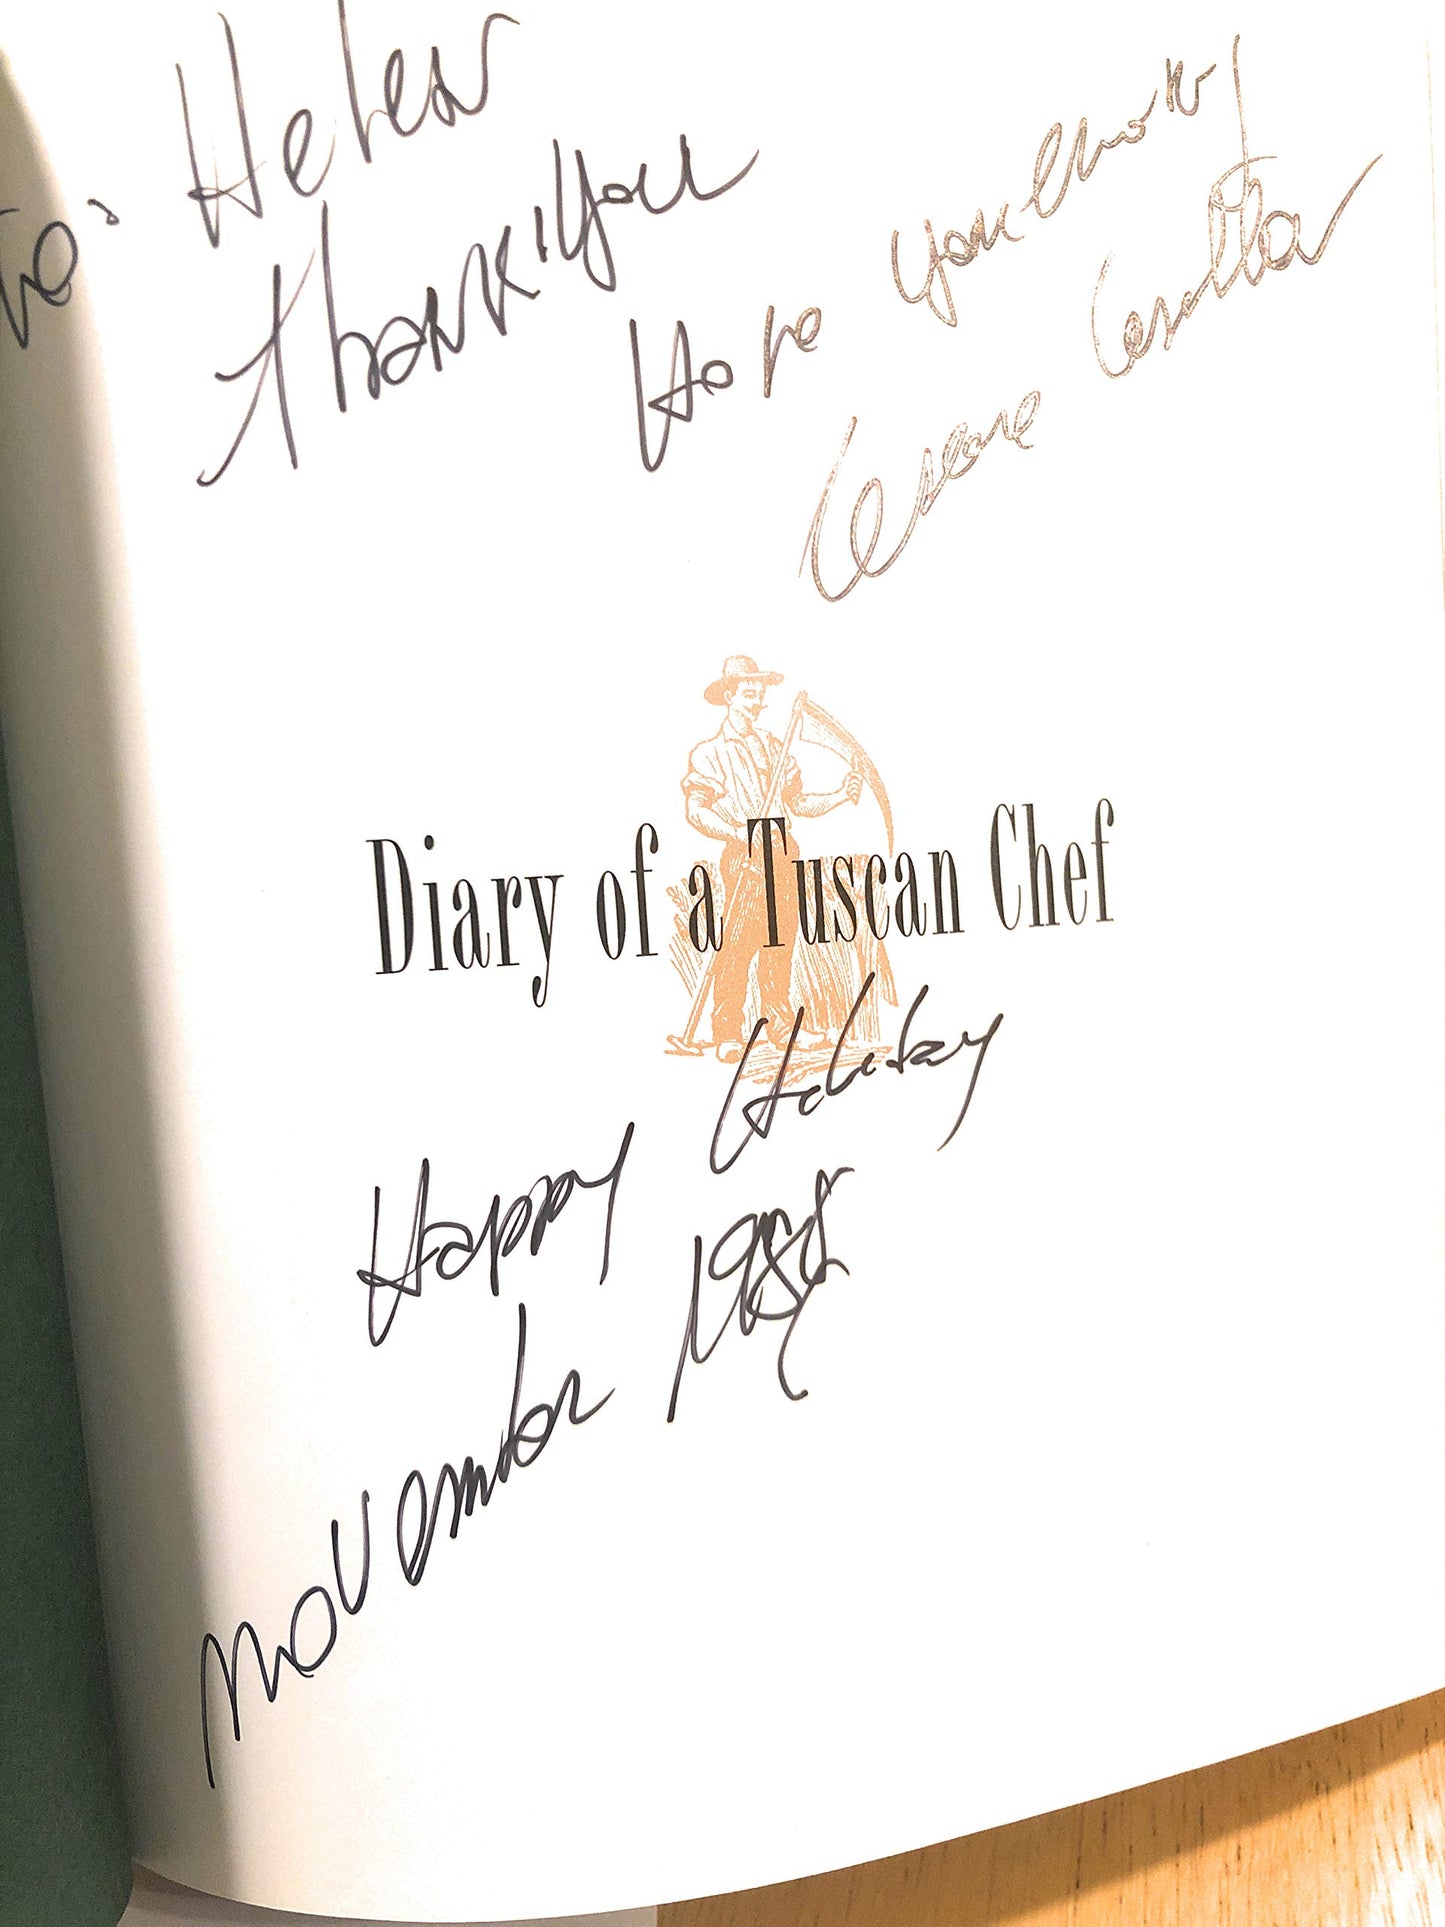 to: Helen
Thank you
Hope you
Cesare Casella
Diary of a Tuscan Chef
Happy Holiday
November 1998